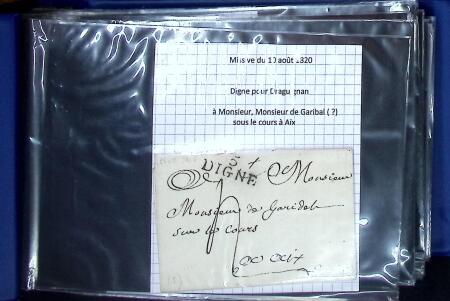 Missive du 10 août 1820
Digne pour Draguignan
à Monsieur, Monsieur de Garibal ( ?)
sous le cours à Aix
5 4
DIGNE
Monsieur
Monsieur de Garidel
sur le Cours
a aix